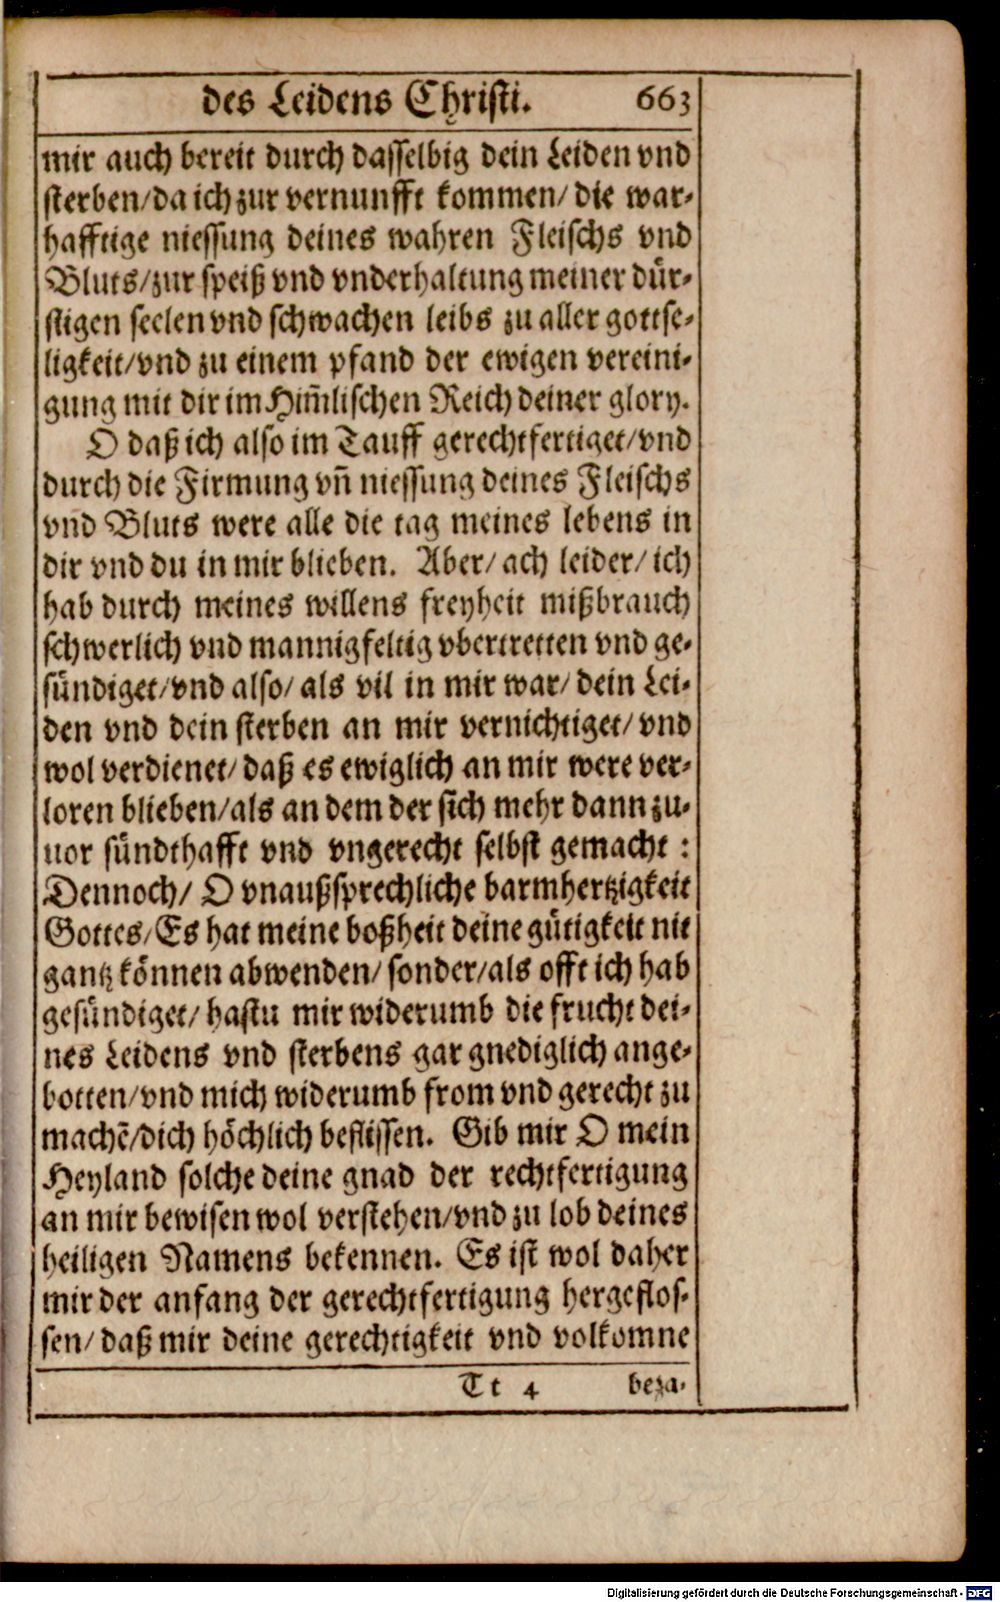 des Leidens Christi. 663
mir auch bereit durch dasselbig dein Leiden vnd
sterben/da ich zur vernunfft kommen/ die war-
hafftige niessung deines wahren Fleischs vnd
Bluts/zur speiß vnd vnderhaltung meiner dür-
stigen seelen vnd schwachen leibs zu aller gottse-
ligkeit/vnd zu einem pfand der ewigen vereini-
gung mit dir im Him̃lischen Reich deiner glory.
O daß ich also im Tauff gerechtfertiget/vnd
durch die Firmung vn̄ niessung deines Fleischs
vnd Bluts were alle die tag meines lebens in
dir vnd du in mir blieben. Aber/ ach leider/ ich
hab durch meines willens freyheit mißbrauch
schwerlich vnd mannigfeltig vbertretten vnd ge-
sündiget/vnd also/ als vil in mir war/ dein Lei-
den vnd dein sterben an mir vernichtiget/ vnd
wol verdienet/ daß es ewiglich an mir were ver-
loren blieben/als an dem der sich mehr dann zu-
uor sündthafft vnd vngerecht selbst gemacht :
Dennoch/ O vnaußsprechliche barmhertzigkeit
Gottes/Es hat meine boßheit deine gütigkeit nit
gantz können abwenden/ sonder/als offt ich hab
gesündiget/ hastu mir widerumb die frucht dei-
nes Leidens vnd sterbens gar gnediglich ange-
botten/vnd mich widerumb from vnd gerecht zu
machē/dich höchlich beflissen. Gib mir O mein
Heyland solche deine gnad der rechtfertigung
an mir bewisen wol verstehen/vnd zu lob deines
heiligen Namens bekennen. Es ist wol daher
mir der anfang der gerechtfertigung hergeflos-
sen/ daß mir deine gerechtigkeit vnd volkomne
Tt 4 beza-
Digitalisierung gefördert durch die Deutsche Forschungsgemeinschaft - DFG